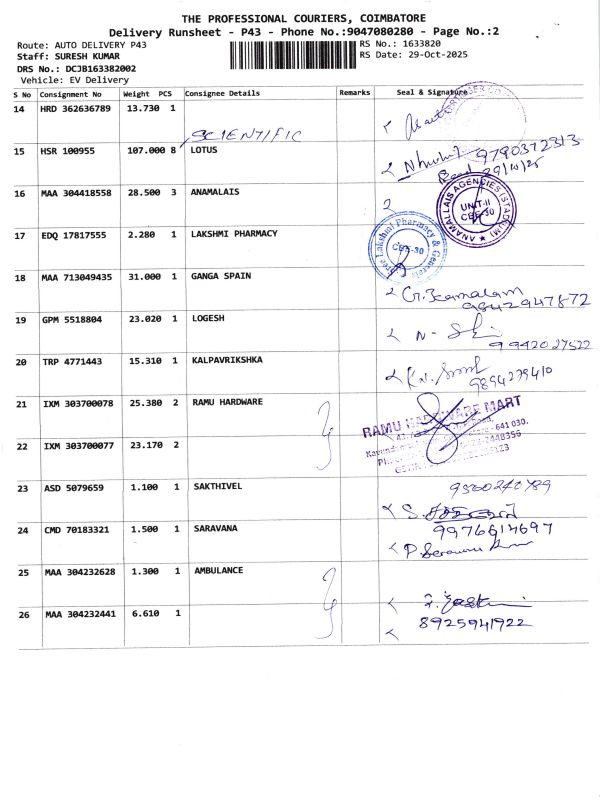 THE PROFESSIONAL COURIERS, COIMBATORE
Delivery Runsheet - P43 - Phone No.:9047080280 - Page No.:2
Route: AUTO DELIVERY P43
RS No.: 1633820
Staff: SURESH KUMAR
RS Date: 29-Oct-2025
DRS No.: DCJB163382002
Vehicle: EV Delivery
S No Consignment No Weight PCS Consignee Details Remarks Seal & Signature
14 HRD 362636789 13.730 1
SCIENTIFIC
15 HSR 100955 107.000 8 LOTUS
9790372313
29/10/25
16 MAA 304418558 28.500 3 ANAMALAIS
ANAMALLAIS AGENCIES (STADIUM)
UNIT-II
CBE-30
17 EDQ 17817555 2.280 1 LAKSHMI PHARMACY
Lakshmi Pharmacy & General
CBE-30
18 MAA 713049435 31.000 1 GANGA SPAIN
G. Kamalam
9842947872
19 GPM 5518804 23.020 1 LOGESH
9942027522
20 TRP 4771443 15.310 1 KALPAVRIKSHKA
9894279410
21 IXM 303700078 25.380 2 RAMU HARDWARE
RAMU HARDWARE MART
641 030.
22 IXM 303700077 23.170 2
23 ASD 5079659 1.100 1 SAKTHIVEL
24 CMD 70183321 1.500 1 SARAVANA
9976614697
25 MAA 304232628 1.300 1 AMBULANCE
26 MAA 304232441 6.610 1
8925941922